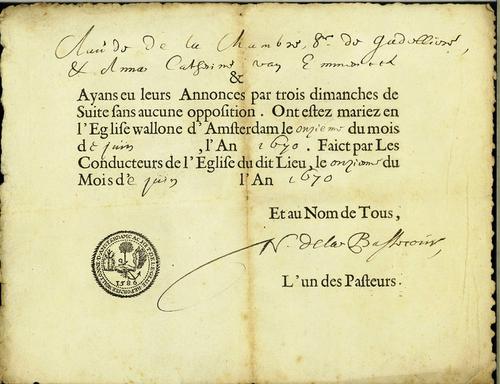 de la Chambre, Sr. de
& Anna Catherine van Emmerick
&
Ayans eu leurs Annonces par trois dimanches de
Suite sans aucune opposition. Ont estez mariez en
l'Eglise wallone d'Amsterdam le onzieme du mois
de juin , l'An 1670. Faict par Les
Conducteurs de l'Eglise du dit Lieu, le onzieme du
Mois de juin l'An 1670
Et au Nom de Tous,
N. de la Bassecour,
L'un des Pasteurs.
1586